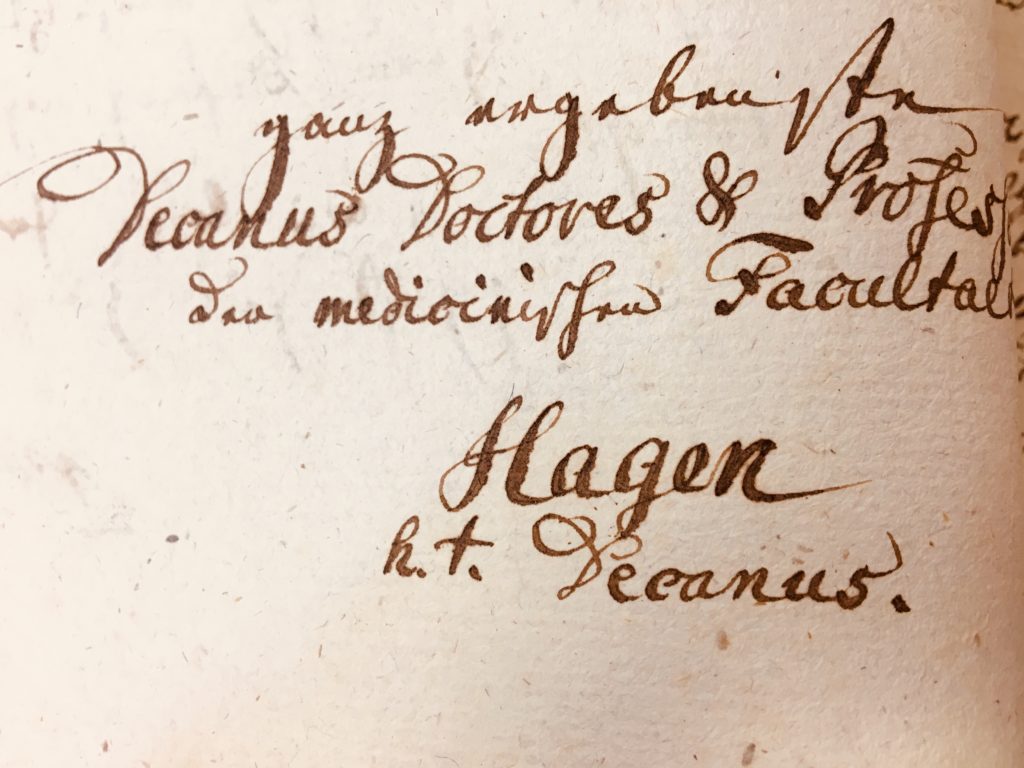 ganz ergebenste
Decanus Doctores & Profess
der medicinischen Facultae
Hagen
h. t. Decanus.